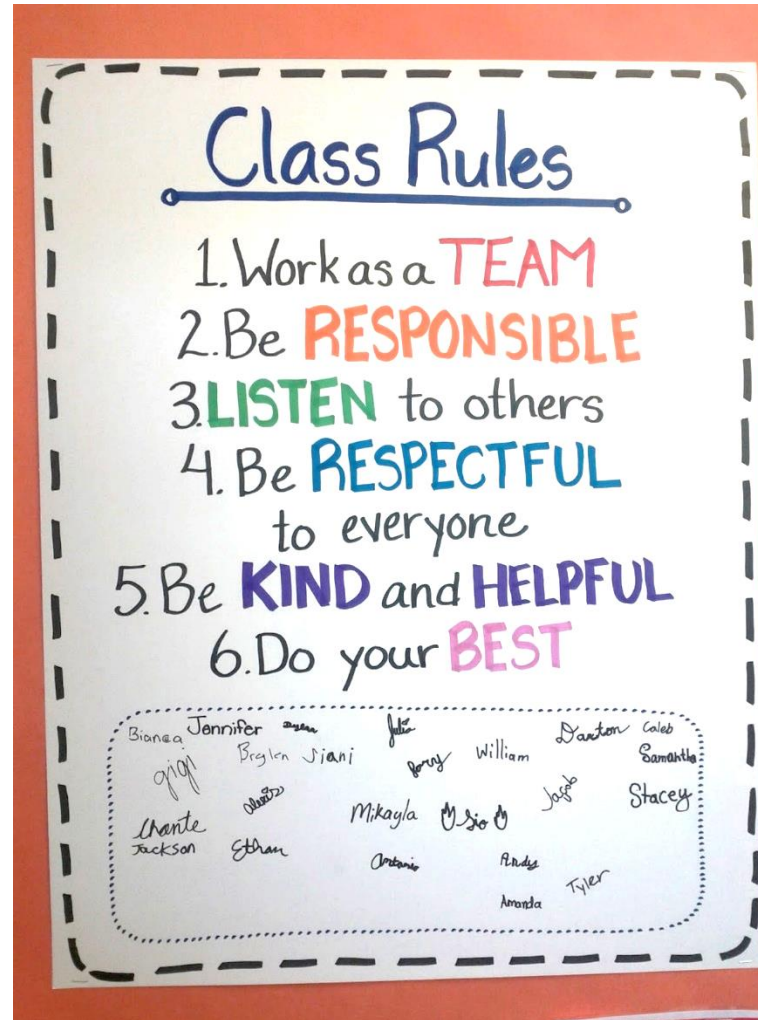 Class Rules
1. Work as a TEAM
2. Be RESPONSIBLE
3. LISTEN to others
4. Be RESPECTFUL
to everyone
5. Be KIND and HELPFUL
6. Do your BEST
Bianca Jennifer Julia Daxton Caleb
gigi Jiani William Samantha
Jacob Stacey
Chante Mikayla
Jackson Ethan Antonio Andy
Tyler
Amanda